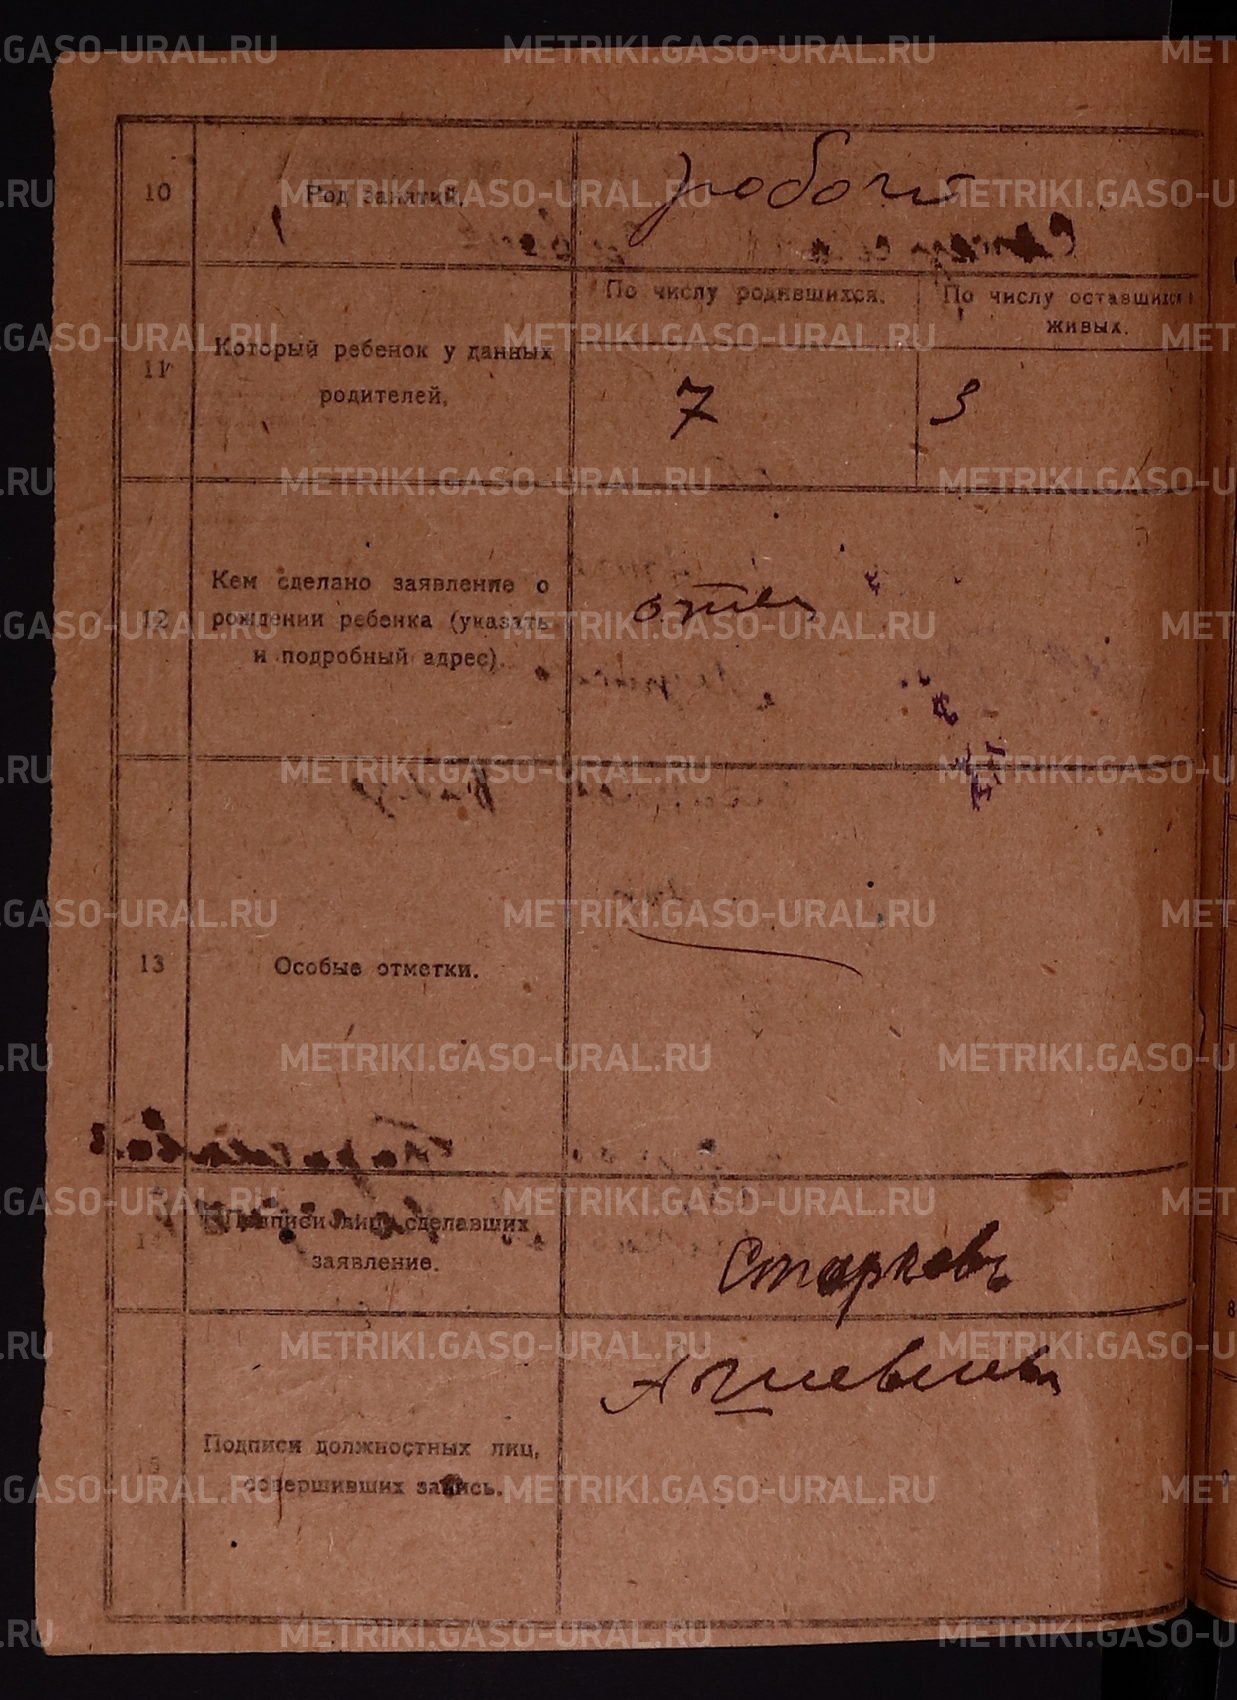 10 Род занятий, рабочий
11 Который ребенок у данных
родителей,
По числу родившихся. По числу оставшихся
живых.
7 3
12 Кем сделано заявление о
рождении ребенка (указать
и подробный адрес).
отец
13 Особые отметки.
Подписи лиц, сделавших
заявление.
Старков
15 Подписи должностных лиц,
совершивших запись.
METRIKI.GASO-URAL.RU